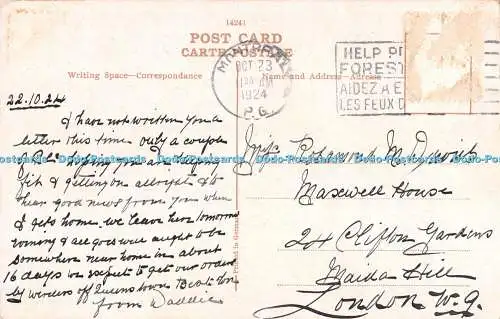 14241
POST CARD
CARTE POSTALE
MONTREAL
OCT 23
1924
P.Q.
HELP PR
FOREST
AIDEZ A E
LES FEUX D
Writing Space—Correspondance
Name and Address—Adresse
22.10.24
I have not written you a
letter this time only a couple
of P.Cs hoping you are keeping
fit & getting on allright & to
hear good news from you when
I gets home we leave here tomorrow
morng & all goes well aught to be
somewhere near home in about
16 days we expect to get our orders
by wireless off Queenstown Best Love
from Daddie
Maxwell House
24 Clifton Gardens
Maida Hill
London W.9.
Printed in Germany
Dodo-Postcards Dodo-Postcards Dodo-Postcards Dodo-Postcards